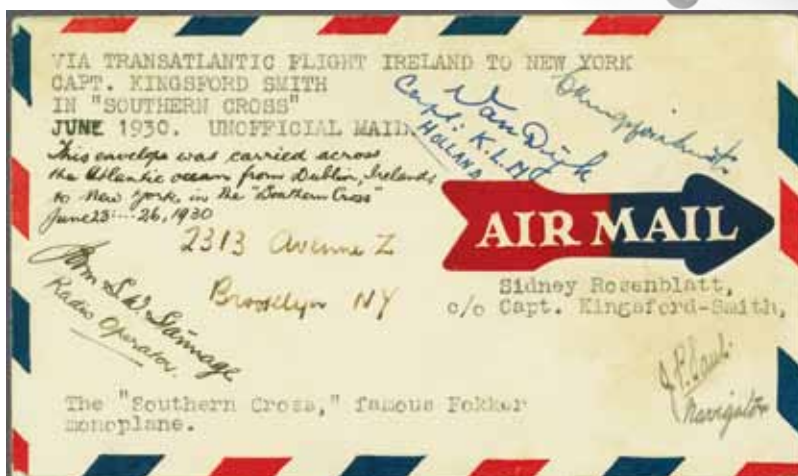 VIA TRANSATLANTIC FLIGHT IRELAND TO NEW YORK
CAPT. KINGSFORD SMITH
IN "SOUTHERN CROSS"
JUNE 1930. UNOFFICIAL MAIL.
This envelope was carried across
the Atlantic ocean from Dublin, Ireland
to New York, in the "Southern Cross"
June 23....26, 1930
Van Dijk
Capt: K.L.M
HOLLAND
AIR MAIL
2313 Avenue Z
Brooklyn NY
Sidney Rosenblatt,
c/o Capt. Kingsford-Smith,
John S.W. Stannage
Radio Operator.
J.P. Saul.
Navigator
The "Southern Cross," famous Fokker
monoplane.